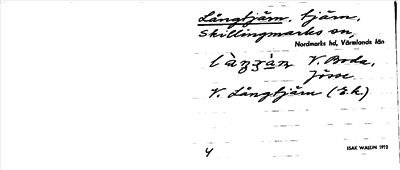 Långtjärn, tjärn,
Skillingmarks sn,
Nordmarks hd, Värmlands län
V. Boda,
Jösse
V. Långtjärn (E.k.)
4
ISAK WALLIN 1973